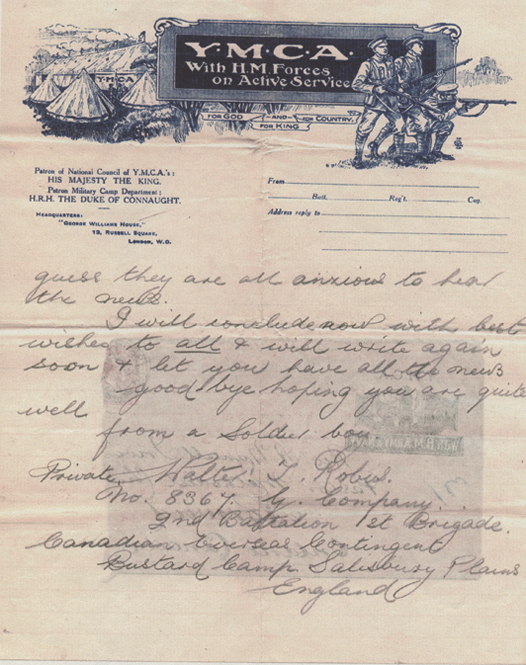 Y·M·C·A·
With H.M. Forces
on Active Service
Y·M·C·A
FOR GOD —AND— FOR COUNTRY.
FOR KING
Patron of National Council of Y.M.C.A.'s:
HIS MAJESTY THE KING.
Patron Military Camp Department:
H.R.H. THE DUKE OF CONNAUGHT.
HEADQUARTERS:
"GEORGE WILLIAMS HOUSE,"
13, RUSSELL SQUARE,
LONDON, W.C.
From
Batt. Reg't. Coy.
Address reply to
guess they are all anxious to hear
the news.
I will conclude now with best
wishes to all & will write again
soon & let you have all the news
good bye hoping you are quite
well
from a Soldier boy
Private Walter
No. 8367. G. Company.
2nd Battalion 1st Brigade.
Canadian Overseas Contingent
Bustard Camp Salisbury Plains
England